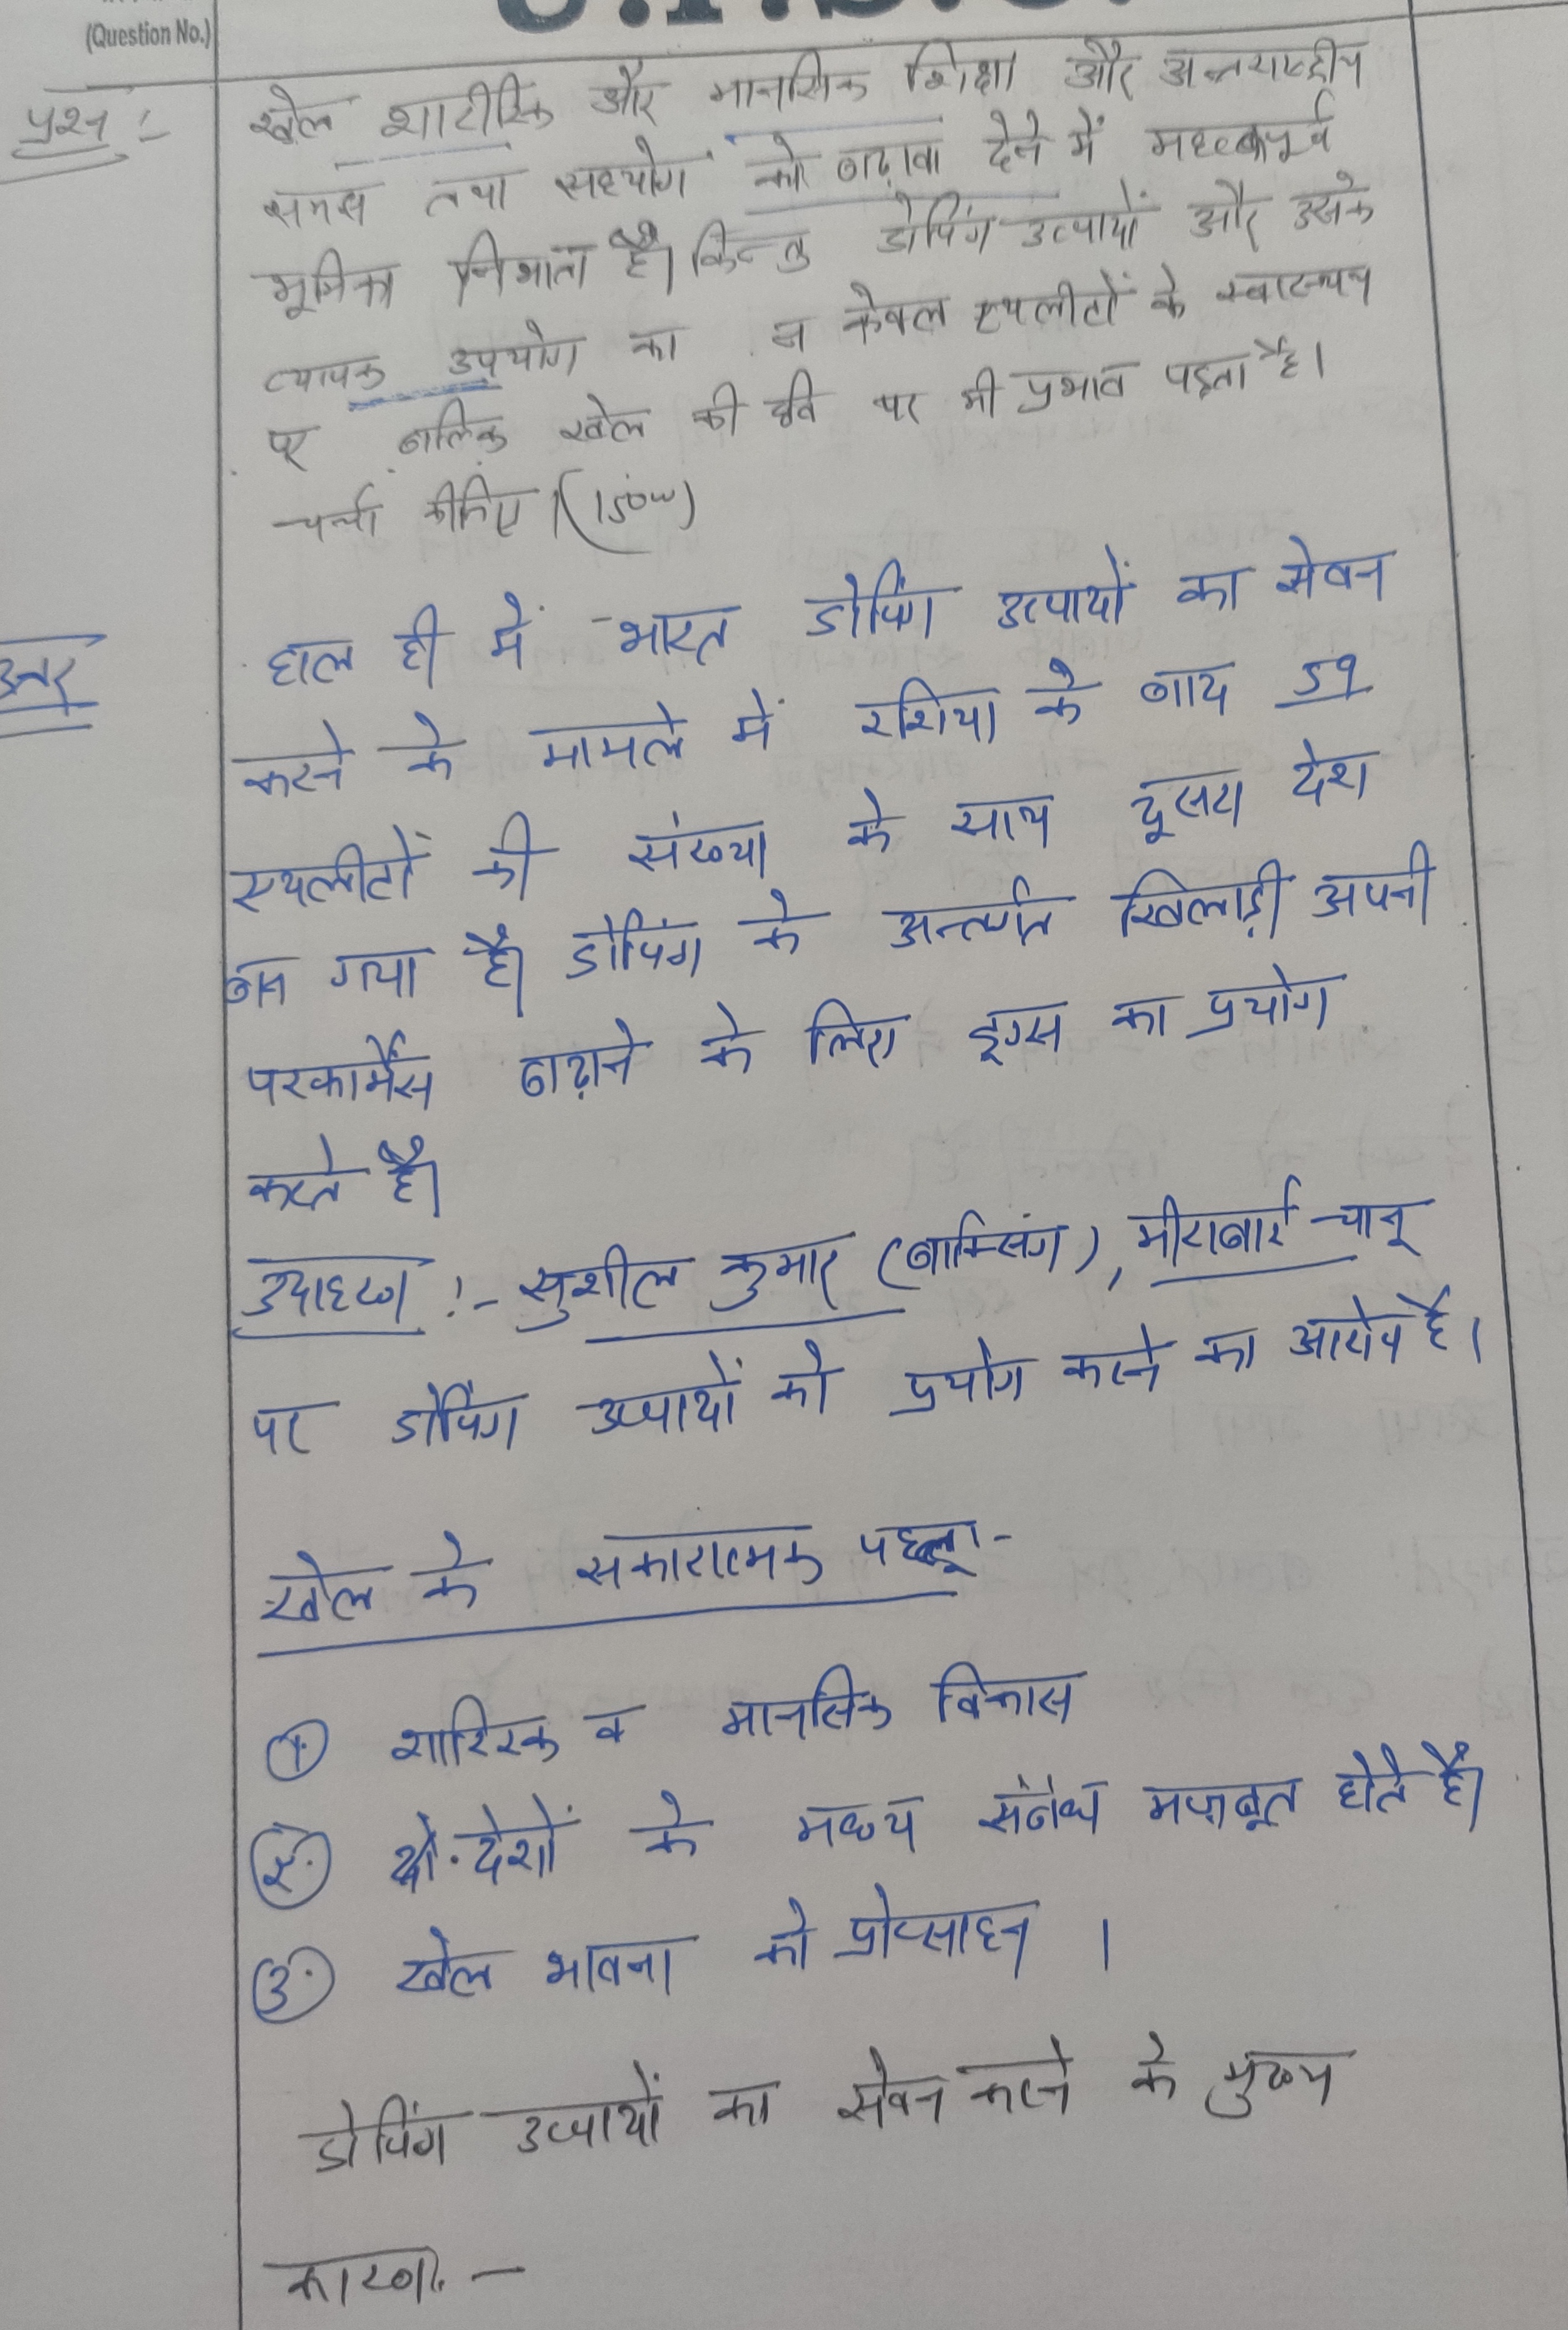 (Question No.)
प्रश्न :- खेल शारीरिक और मानसिक शिक्षा और अन्तराष्ट्रीय
समझ तथा सहयोग को बढ़ावा देने में महत्वपूर्ण
भूमिका निभाता है। किन्तु डोपिंग उत्पादों और उसके
व्यापक उपयोग का न केवल एथलीटों के स्वास्थ्य
पर बल्कि खेल की छवि पर भी प्रभाव पड़ता है।
चर्चा कीजिए।
उत्तर हाल ही में भारत डोपिंग उत्पादों का सेवन
करने के मामले में रशिया के बाद 59
एथलीटों की संख्या के साथ दूसरा देश
बन गया है। डोपिंग के अन्तर्गत खिलाड़ी अपनी
परफार्मेंस बढ़ाने के लिए ड्रग्स का प्रयोग
करते है।
उदाहरण :- सुशील कुमार (बाक्सिंग), मीराबाई चानू
पर डोपिंग उत्पादों को प्रयोग करने का आरोप है।
खेल के सकारात्मक पहलू -
1. शारिरक व मानसिक विकास
2. दो देशों के मध्य संबंध मज़बूत होते है।
3. खेल भावना को प्रोत्साहन ।
डोपिंग उत्पादों का सेवन करने के मुख्य
कारण :-